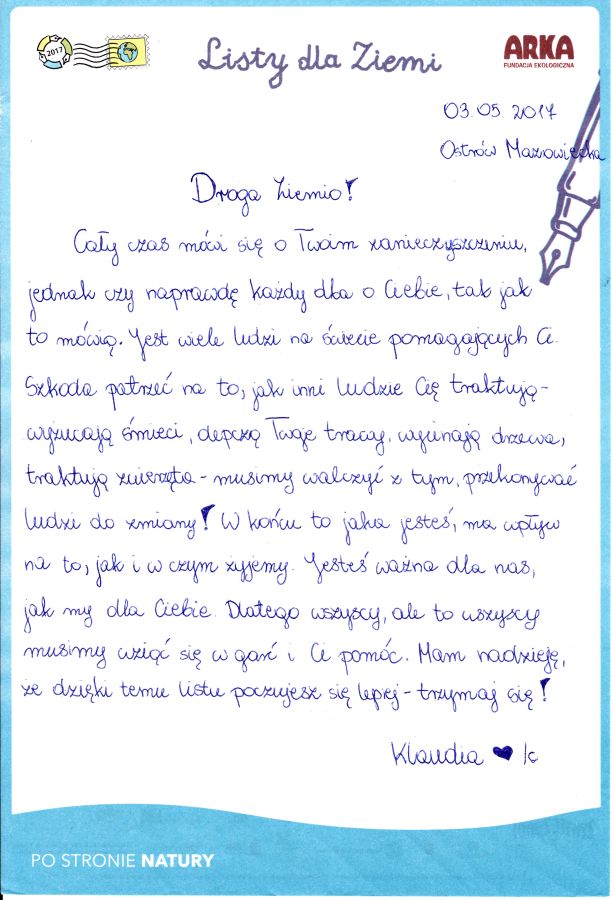 2017
Listy dla Ziemi
ARKA
FUNDACJA EKOLOGICZNA
03.05.2017
Ostrów Mazowiecka
Droga Ziemio!
Cały czas mówi się o Twoim zanieczyszczeniu,
jednak czy naprawdę każdy dba o Ciebie, tak jak
to mówią. Jest wiele ludzi na świecie pomagających Ci.
Szkoda patrzeć na to, jak inni ludzie Cię traktują-
wyżucają śmieci, depczą Twoje trawy, wycinają drzewa,
traktują zwierzęta - musimy walczyć z tym, przekonywać
ludzi do zmiany! W końcu to jaka jesteś, ma wpływ
na to, jak i w czym żyjemy. Jesteś ważna dla nas,
jak my dla Ciebie. Dlatego wszyscy, ale to wszyscy
musimy wziąć się w garść i Ci pomóc. Mam nadzieję,
że dzięki temu listu poczujesz się lepiej - trzymaj się!
Klaudia ♥ K
PO STRONIE NATURY